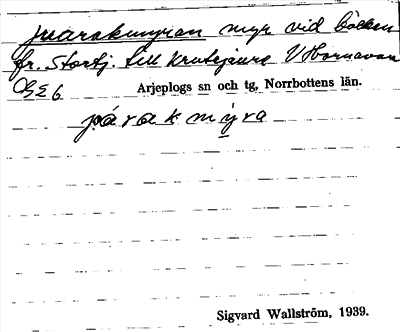 juarakmyran myr vid bäcken
fr. Stortj. till Krutsjaure V Hornavan
G2E6 Arjeplogs sn och tg, Norrbottens län.
járakmỳra
Sigvard Wallström, 1939.